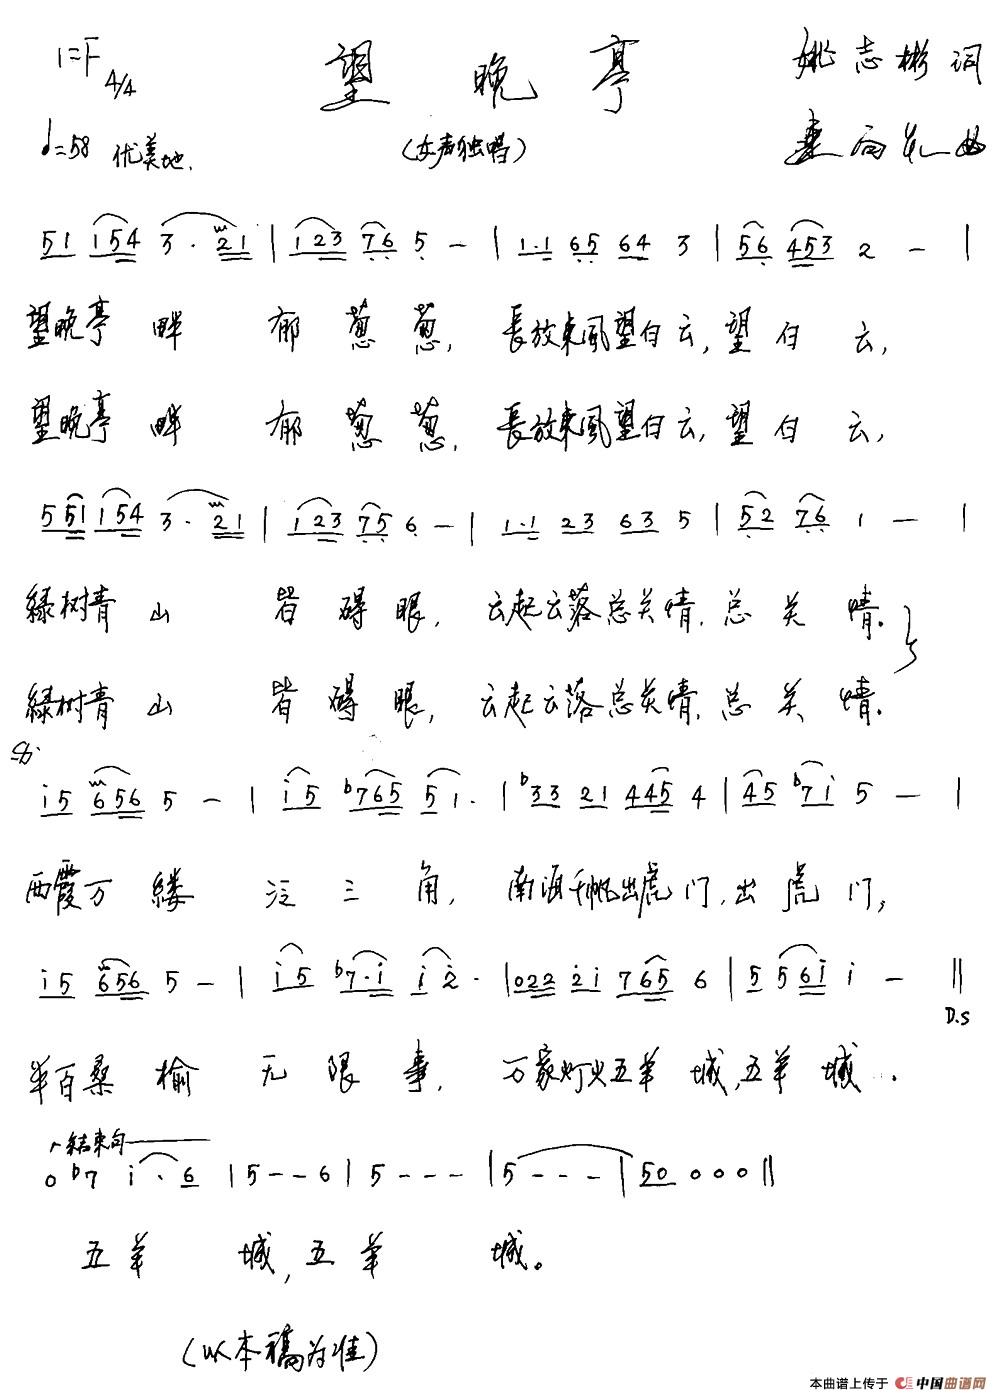 1=F 4/4 望 晚 亭 姚志彬词
♩=58 优美地. (女声独唱) 曲
51 154 3 · 21 | 123 76 5 — | 1·1 65 64 3 | 56 453 2 — |
望晚亭 畔 郁 葱 葱, 長放東風望白云, 望 白 云,
望晚亭 畔 郁 葱 葱, 長放東風望白云, 望 白 云,
5 51 154 3 · 21 | 123 75 6 — | 1·1 23 63 5 | 52 76 1 — |
緑树青 山 皆 碍 眼, 云起云落总关情, 总 关 情.
緑树青 山 皆 碍 眼, 云起云落总关情, 总 关 情.
i5 656 5 — | i5 b765 51· | b33 21 445 4 | 45 b7i 5 — |
西霞万 缕 泛 三 角, 南海千帆出虎门, 出 虎 门,
i5 656 5 — | i5 b7·i i2· | 022 2i 765 6 | 5 56i i — ‖
D.S
半百桑 榆 无 限 事, 万家灯火五羊 城, 五羊 城.
结束句
0 b7 i · 6 | 5 - - 6 | 5 - - - | 5 - - - | 50 0 0 0 ‖
五 羊 城, 五 羊 城。
(以本稿为准)
本曲谱上传于 中国曲谱网